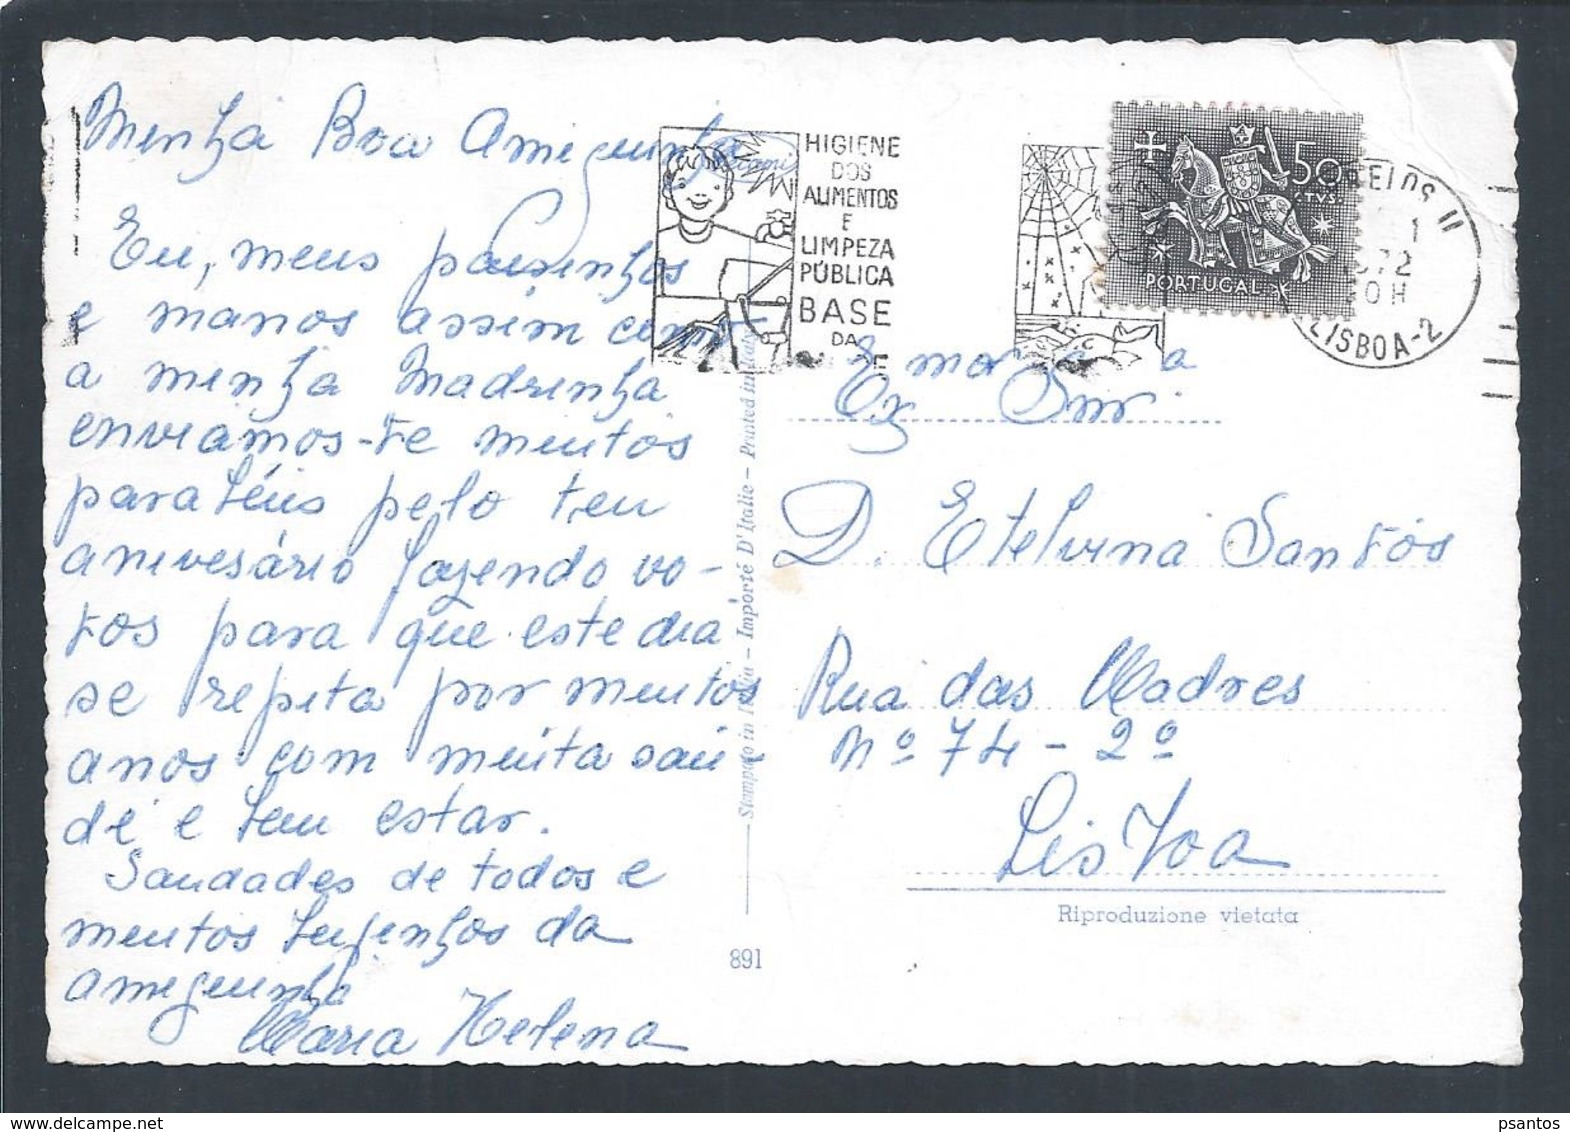 Minha Boa Amiguinha
Eu, meus paisinhos
e manos assim como
a minha Madrinha
enviamos-te muitos
parabéns pelo teu
anivesário fazendo vo-
tos para que este dia
se repita por muitos
anos com muita saú-
de e bem estar.
Saudades de todos e
muitos beijinhos da
amiguinha
Maria Helena
HIGIENE
DOS
ALIMENTOS
E
LIMPEZA
PÚBLICA
BASE
DA
50
CTVS.
PORTUGAL
LISBOA-2
Stampato in Italia - Importé D'Italie - Printed in Italy
891
Exma Snra
D. Etelvina Santos
Rua das Madres
Nº 74 - 2º
Lisboa
Riproduzione vietata
psantos